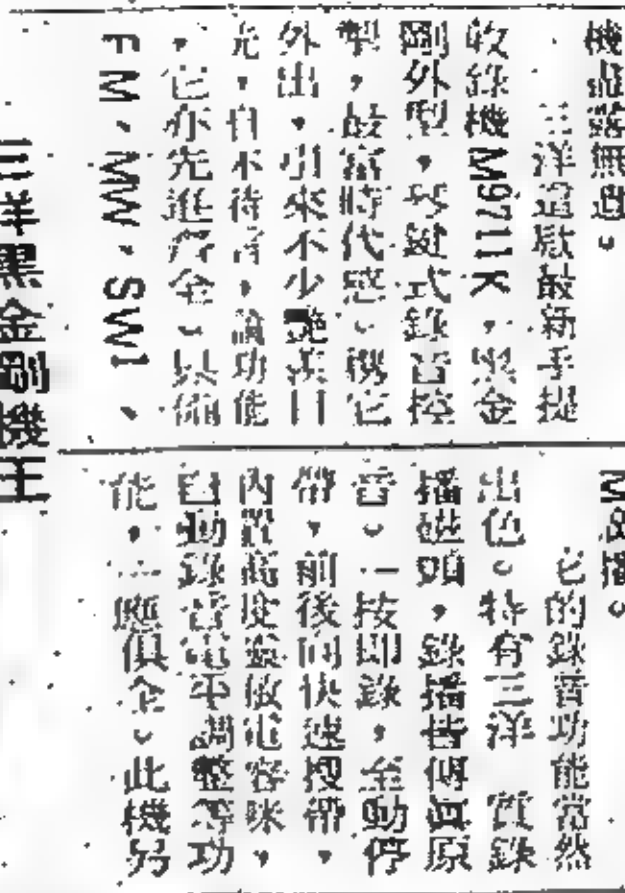 三洋黑金剛機王
機盡露無遺。
三洋這款最新手提
收錄機M9711K，黑金
剛外型，琴鍵式錄音控
掣，最富時代感。攜它
外出，引來不少艷羨目
光，自不待言，論功能
，它亦先進齊全。具備
FM、MW、SW1、
播。
它的錄音功能當然
出色。特有三洋 質錄
播磁頭，錄播皆傳真原
音。一按即錄，全動停
帶，前後向快速搜帶，
內置高度靈敏電容咪，
自動錄音電平調整等功
能，一應俱全。此機另